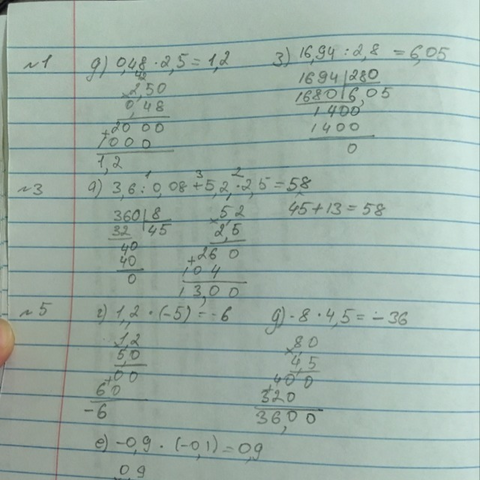 №1 д) 0,48 · 2,5 = 1,2 з) 16,94 : 2,8 = 6,05
× 2,50 1694 | 280
0,48 1680 | 6,05
+ 2000 1400
1000 1400
1,2 0
№3 а) 3,6 : 0,08 + 5,2 · 2,5 = 58
1 3 2
360 | 8 × 5,2 45 + 13 = 58
32 | 45 2,5
40 + 260
40 104
0 13,00
№5 г) 1,2 · (-5) = -6 д) -8 · 4,5 = -36
1,2 × 80
5,0 4,5
00 + 400
+ 60 320
-6 36,00
е) -0,9 · (-0,1) = 0,9
0,9